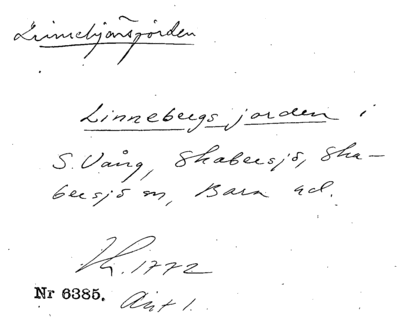 Linnebjärsjorden
Linnebergs jorden i
S. Vång, Skabersjö, Ska-
bersjö sn, Bara hd.
Kh. 1772
Nr 6385. Akt 1.